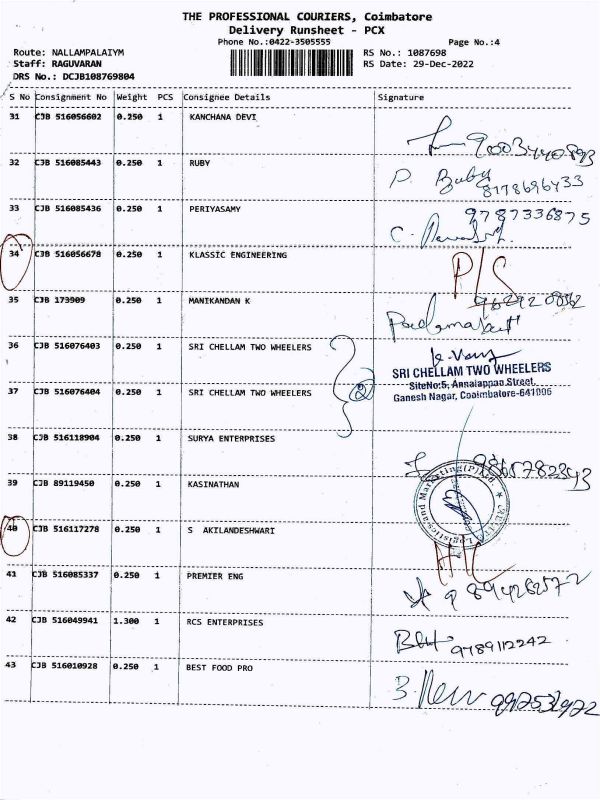 THE PROFESSIONAL COURIERS, Coimbatore
Delivery Runsheet - PCX
Phone No.:0422-3505555 Page No.:4
Route: NALLAMPALAIYM RS No.: 1087698
Staff: RAGUVARAN RS Date: 29-Dec-2022
DRS No.: DCJB108769804
S No Consignment No Weight PCS Consignee Details Signature
31 CJB 516056602 0.250 1 KANCHANA DEVI
32 CJB 516085443 0.250 1 RUBY P. Ruby
8778696433
33 CJB 516085436 0.250 1 PERIYASAMY 9787336875
C.
34 CJB 516056678 0.250 1 KLASSIC ENGINEERING P/S
35 CJB 173909 0.250 1 MANIKANDAN K
36 CJB 516076403 0.250 1 SRI CHELLAM TWO WHEELERS
②
SRI CHELLAM TWO WHEELERS
SiteNo:5, Annaiappan Street,
Ganesh Nagar, Coimbatore-641006
37 CJB 516076404 0.250 1 SRI CHELLAM TWO WHEELERS
38 CJB 516118904 0.250 1 SURYA ENTERPRISES
39 CJB 89119450 0.250 1 KASINATHAN
Logistics and Marketing (P) Ltd.
40 CJB 516117278 0.250 1 S AKILANDESHWARI
41 CJB 516085337 0.250 1 PREMIER ENG
42 CJB 516049941 1.300 1 RCS ENTERPRISES 9789112242
43 CJB 516010928 0.250 1 BEST FOOD PRO